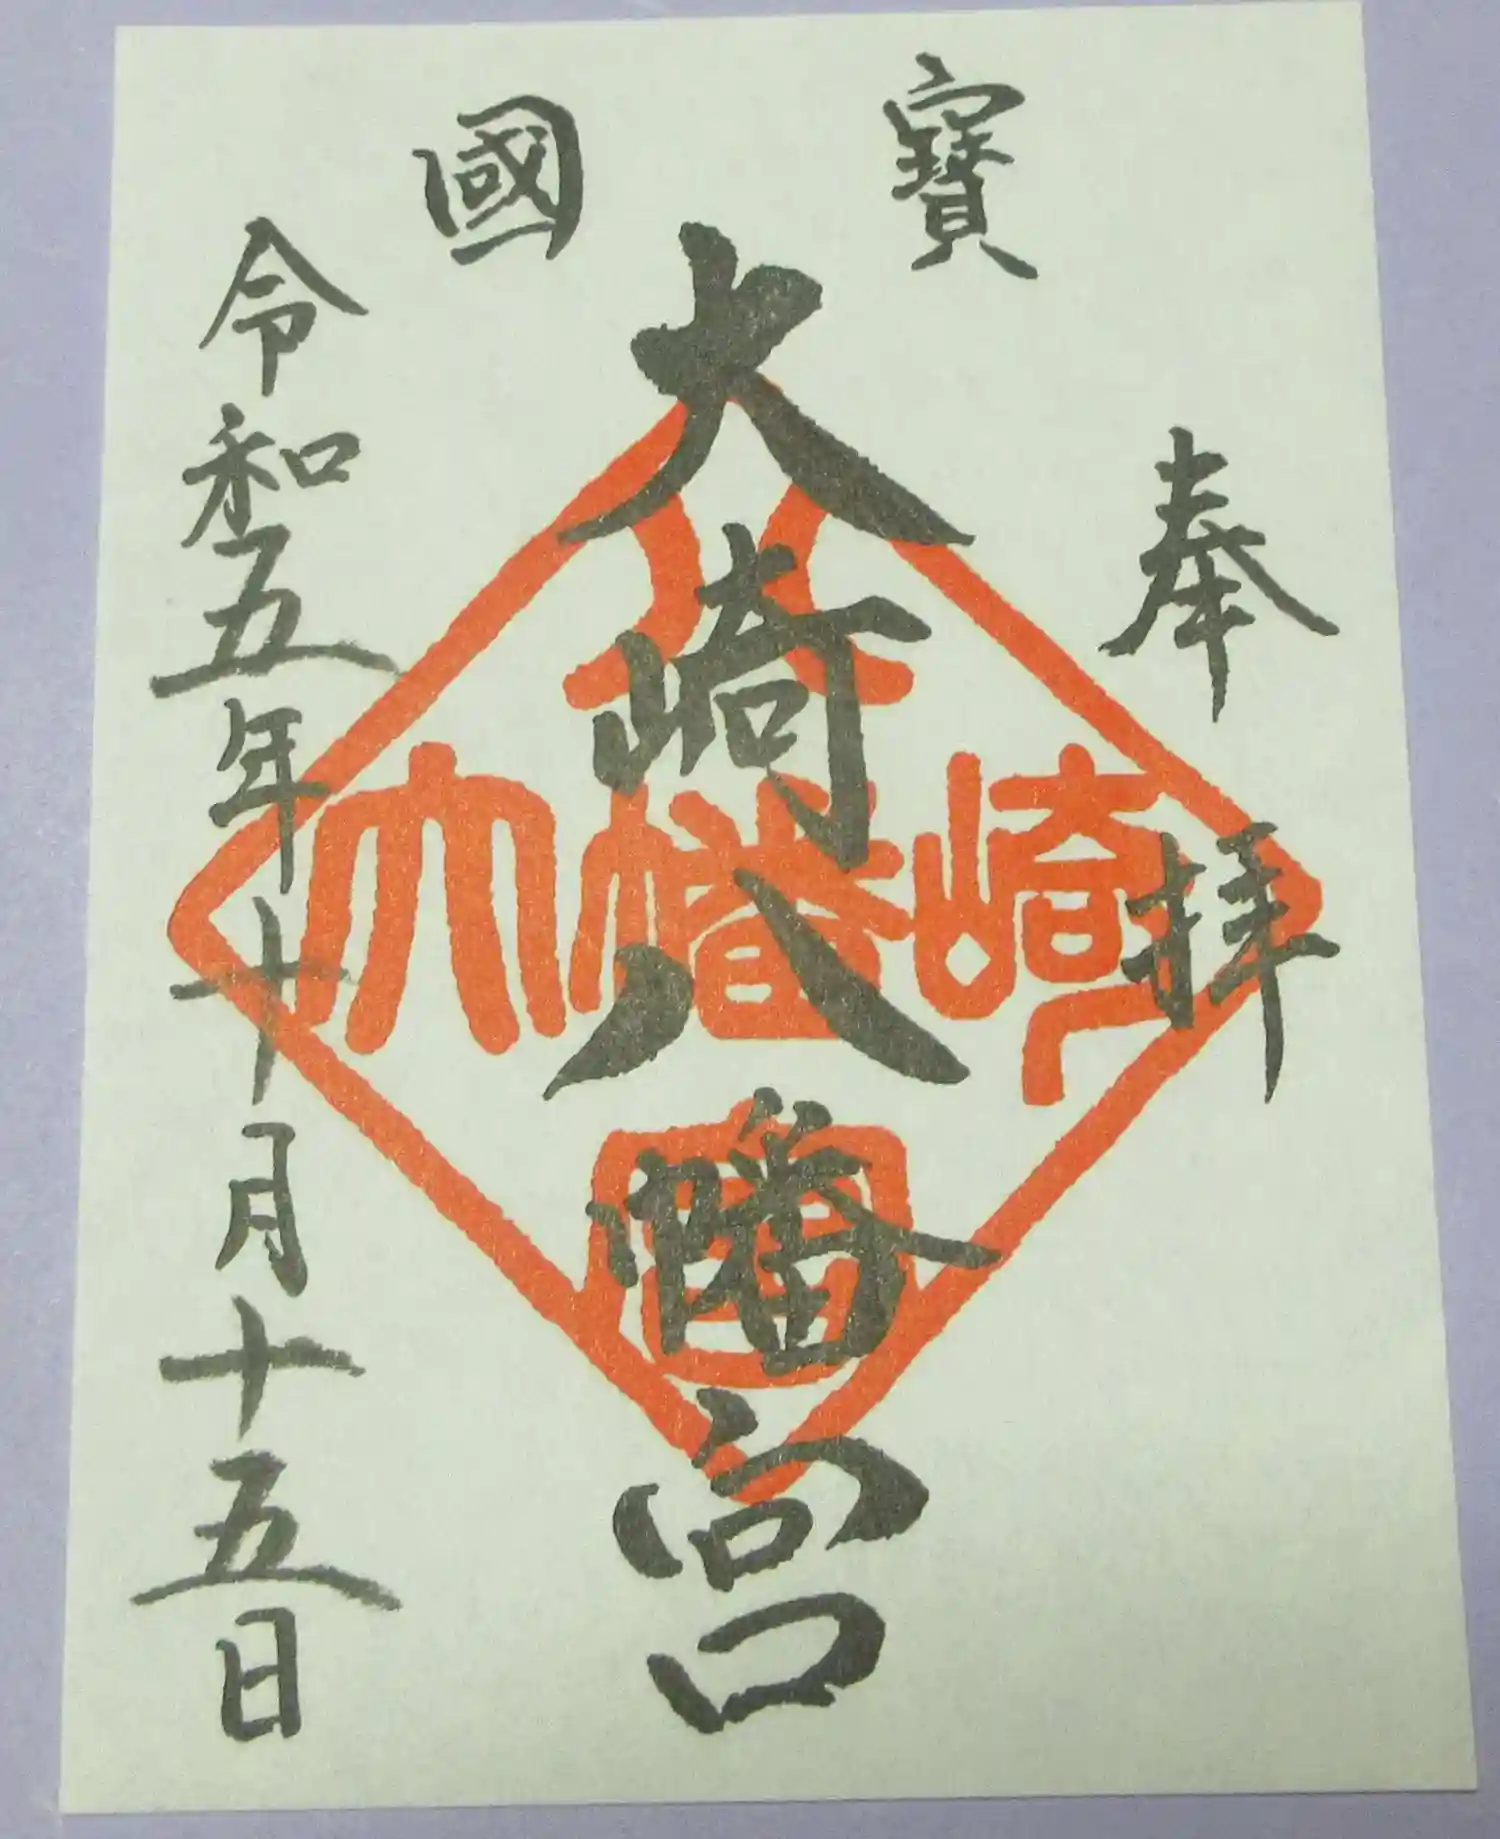 奉拝
寶國
大崎八幡宮
令和五年十月十五日
八
大幡崎
宮